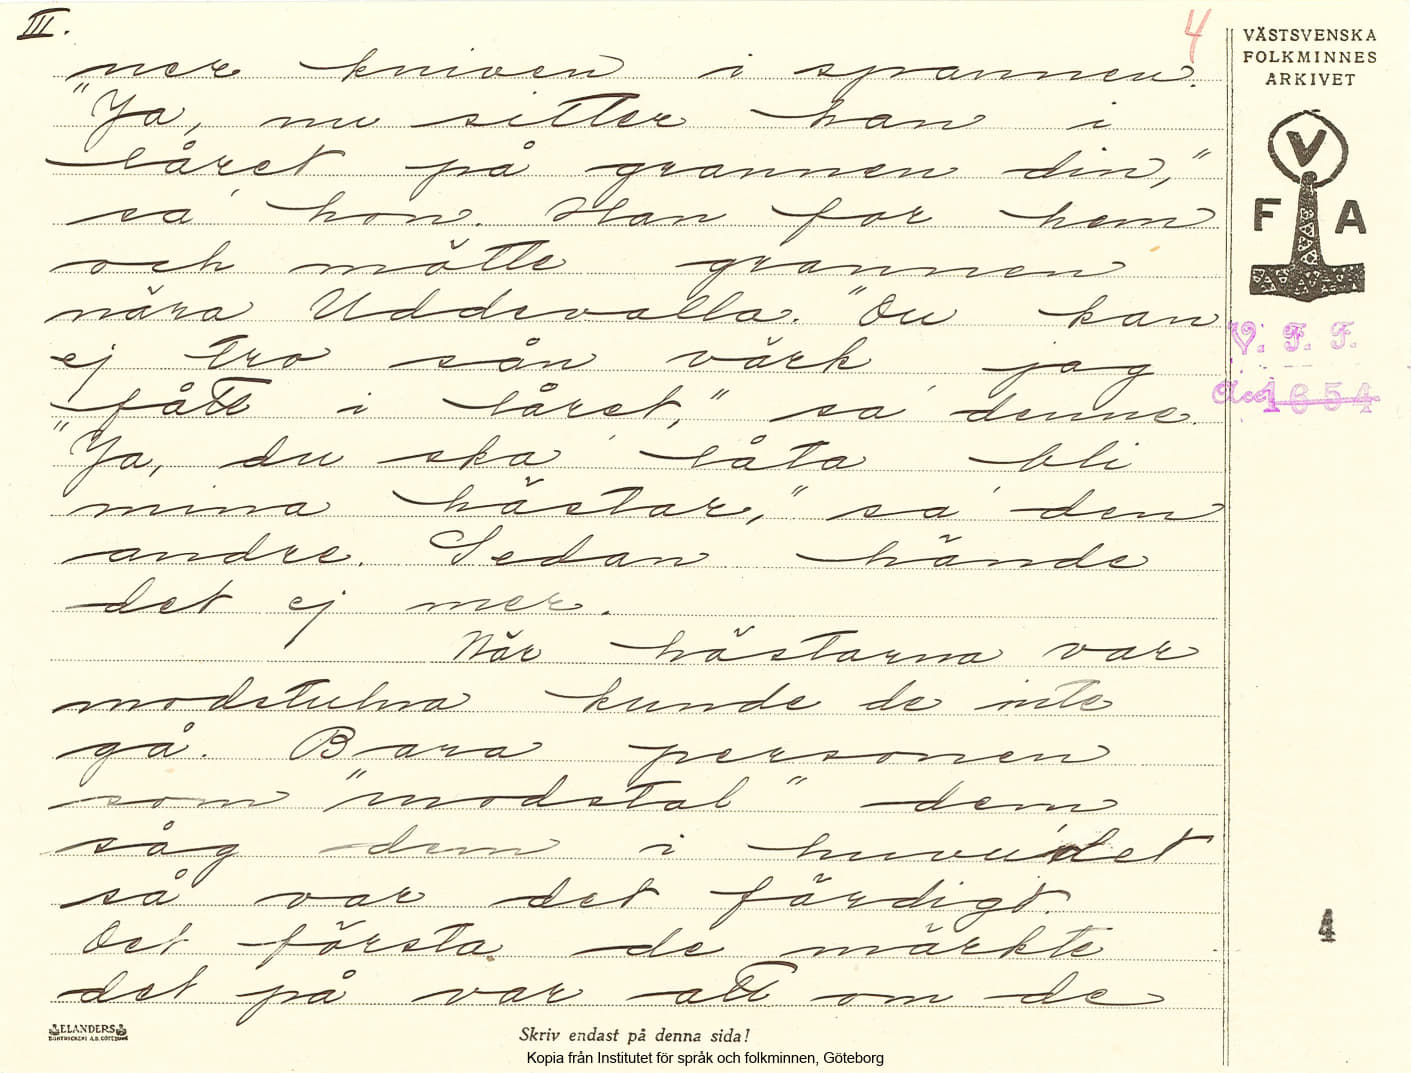 III.
4
ner kniven i spannen.
"Ja, nu sitter han i
låret på grannen din,"
sa' hon. Han for hem
och mötte grannen
nära Uddevalla. "Du kan
ej tro sån värk jag
fått i låret," sa' denne.
"Ja, du ska' låta bli
mina hästar," sa' den
andre. Sedan hände
det ej mer.
När hästarna var
modstulna kunde de inte
gå. Bara personen
som "modstal" dem
såg dem i huvudet
så var det färdigt.
Det första de märkte
det på var att om de
VÄSTSVENSKA
FOLKMINNES
ARKIVET
V
F A
V. F. F.
Acc 1654
4
ELANDERS
BOKTRYCKERI A.B. GÖTEBORG
Skriv endast på denna sida!
Kopia från Institutet för språk och folkminnen, Göteborg